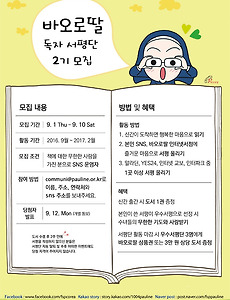 바오로딸
독자 서평단
2기 모집
모집 내용
모집 기간 9. 1 Thu ~ 9. 10 Sat
활동 기간 2016. 9월 ~ 2017. 2월
모집 조건 책에 대한 무한한 사랑을
가진 분으로 SNS 운영자
참여 방법 communi@pauline.or.kr로
이름, 주소, 연락처와
sns 주소를 보내주세요.
당첨자
발표 9. 12, Mon (개별 통보)
도서 수령 후 2주 안에
방법 및 혜택
활동 방법
1. 신간이 도착하면 행복한 마음으로 읽기
2. 본인 SNS, 바오로딸 인터넷서점에
즐거운 마음으로 서평 올리기
3. 알라딘, YES24, 인터넷 교보, 인터파크 중
1곳 이상 서평 올리기
혜택
신간 출간 시 도서 1권 증정
본인이 쓴 서평이 우수서평으로 선정 시
수녀들의 무한한 기도와 사랑받기
서평단 활동 마감 시 우수서평단 3명에게
바오로딸 상품권 또는 3만 원 상당 도서 증정
Facebook : www.facebook.com/fspcross Kakao story : story.kakao.com/100pauline Naver post : post.naver.com/fsppauline